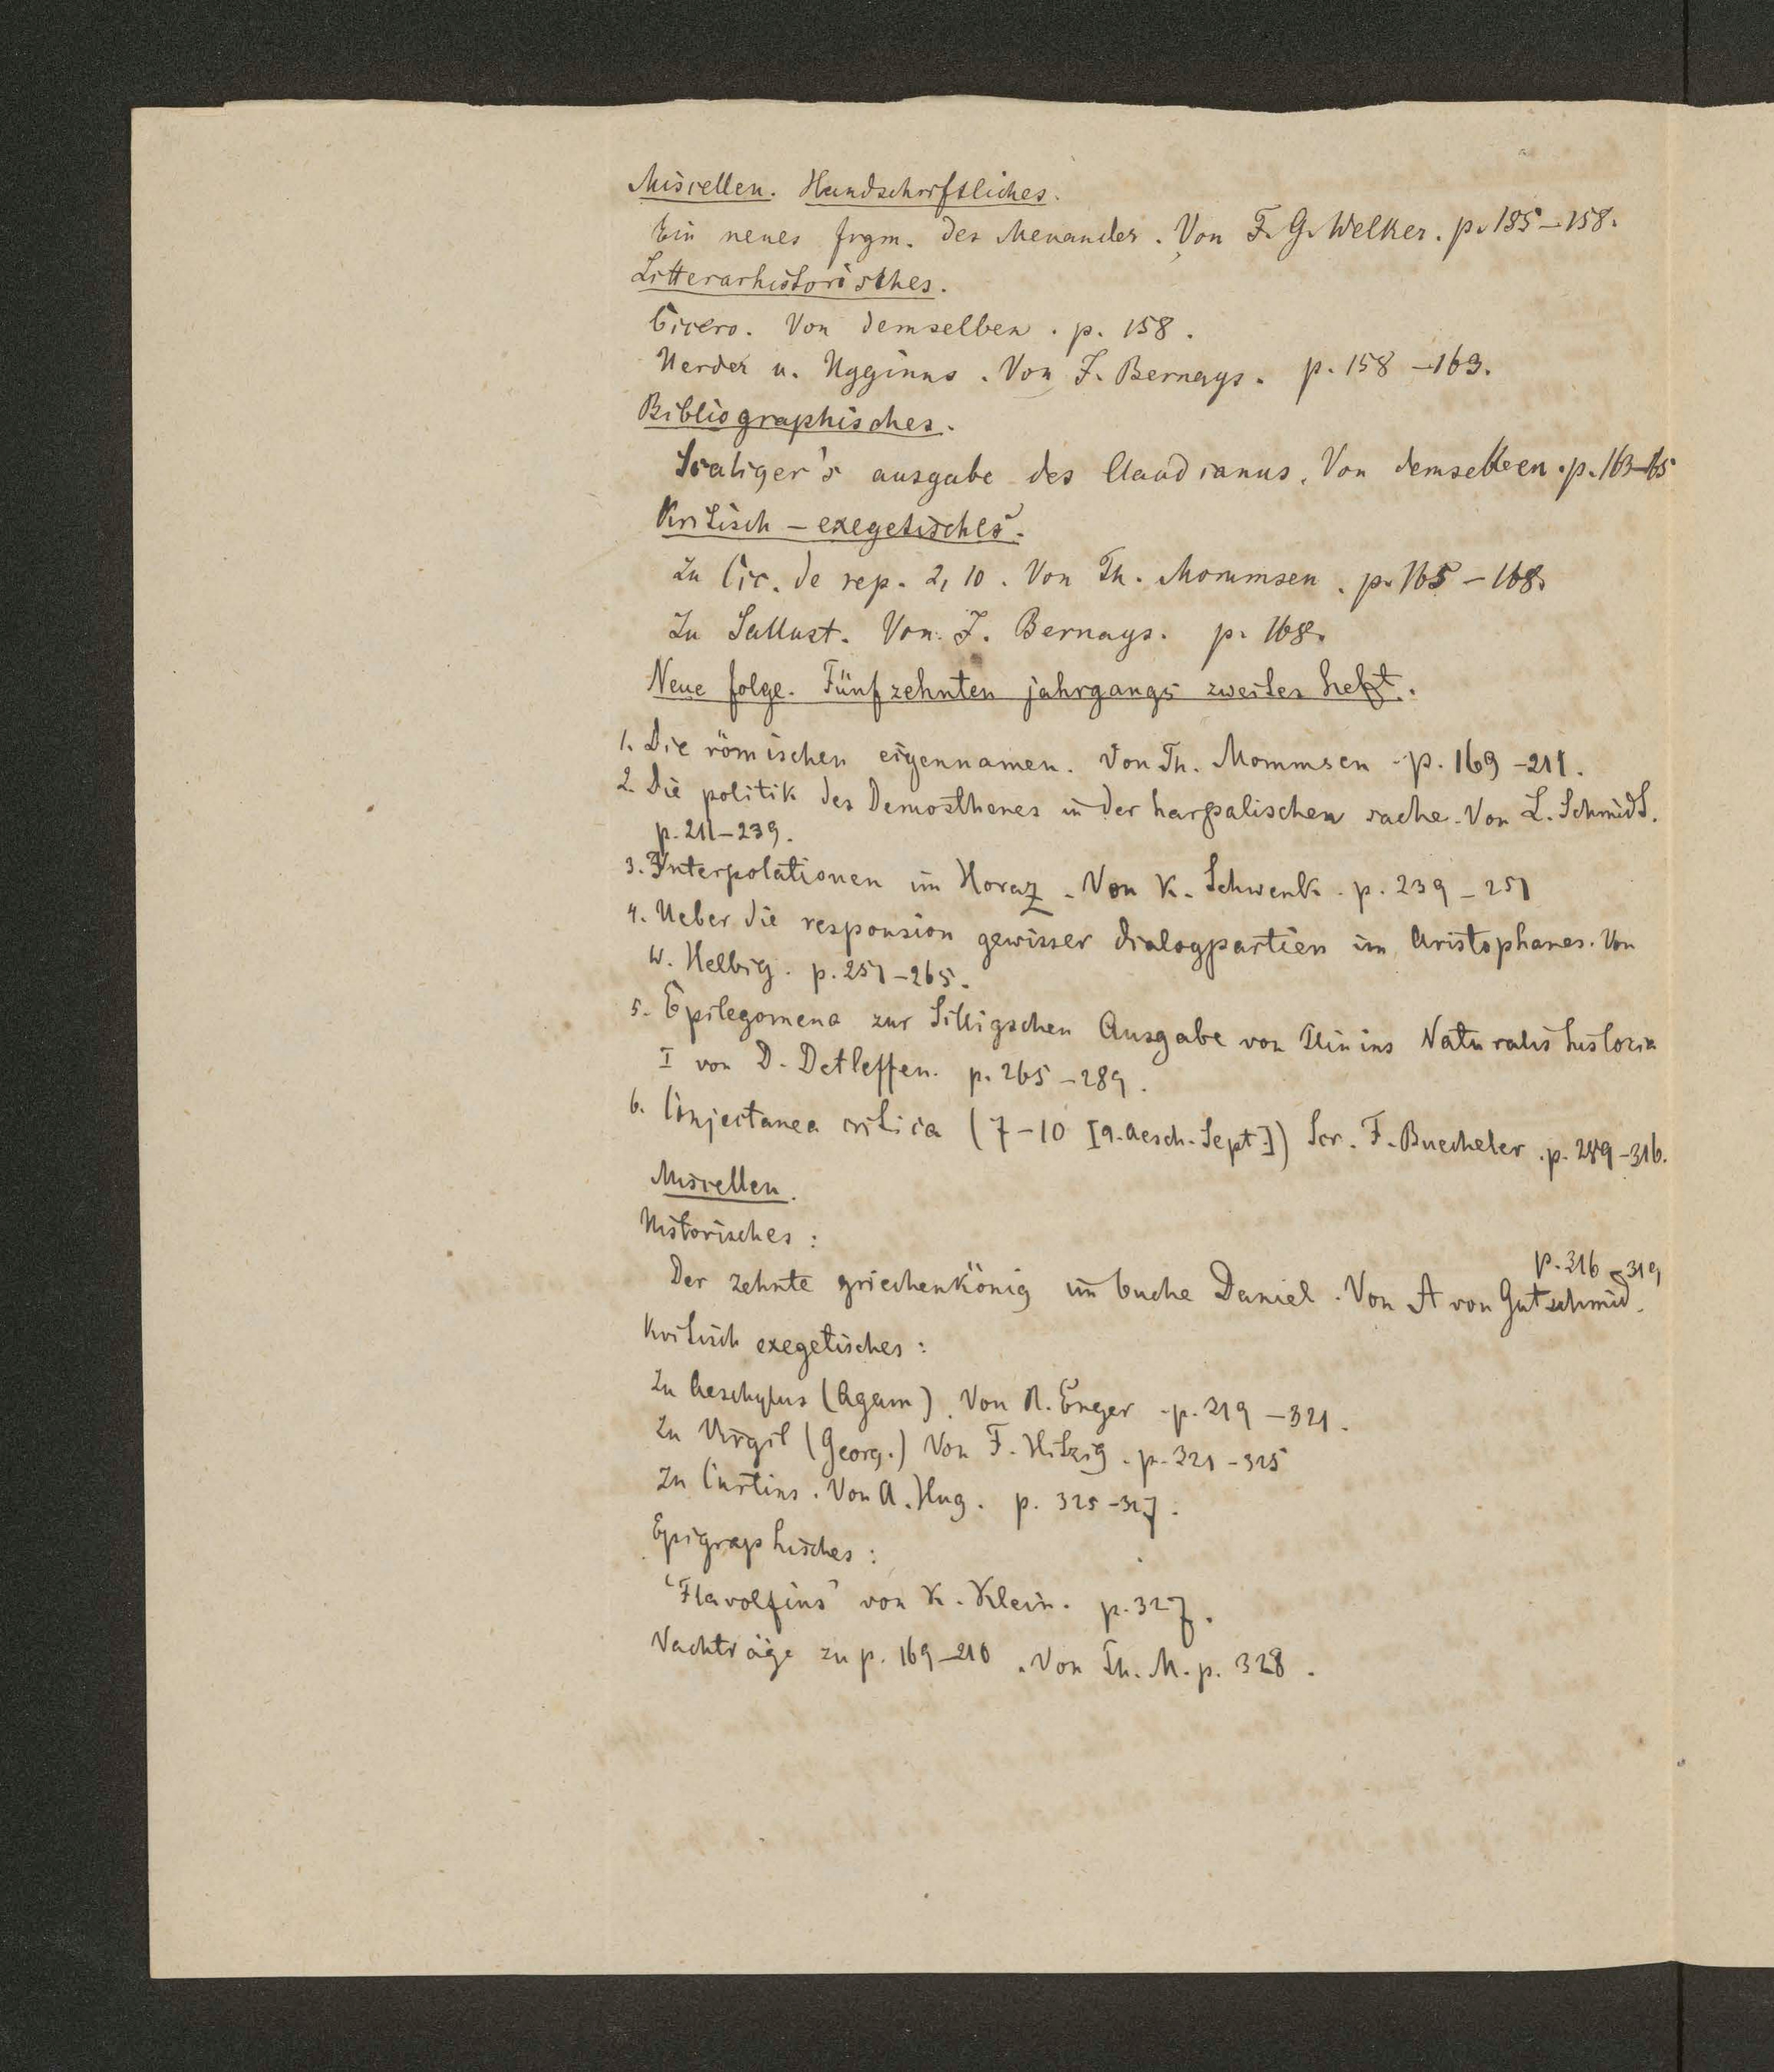 Miscellen. Handschriftliches.
Ein neues frgm. des Menander. Von F. G. Welker. p. 155–158.
Litterarhistorisches.
Cicero. Von demselben. p. 158.
Herder u. Hyginus. Von J. Bernays. p. 158–163.
Bibliographisches.
Scaliger's ausgabe des Claudianus. Von demselben. p. 163–65
Kritisch–exegetisches.
Zu Cic. de rep. 2, 10. Von Th. Mommsen. p. 165–168.
Zu Sallust. Von J. Bernays. p. 168.
Neue folge. Fünfzehnten jahrgangs zweites heft.
1. Die römischen eigennamen. Von Th. Mommsen. p. 169–211.
2. Die politik des Demosthenes in der harpalischen sache. Von L. Schmidt.
p. 211–239.
3. Interpolationen im Horaz. Von K. Schwenk. p. 239–251
4. Ueber die responsion gewisser dialogpartien im Aristophanes. Von
W. Helbig. p. 251–265.
5. Epilegomena zur Silligschen Ausgabe von Plinius Naturalis historia
I von D. Detleffen. p. 265–289.
6. Conjectanea critica (7–10 [9. Aesch. Sept.]) Scr. F. Buecheler. p. 289–316.
Miscellen.
Historisches:
p. 316–319
Der zehnte griechenkönig im buche Daniel. Von A von Gutschmid.
Kritisch exegetisches:
Zu Aeschylus (Agam). Von R. Enger. p. 319–321.
Zu Virgil (Georg.) Von F. Hitzig. p. 321–325
Zu Curtius. Von A. Hug. p. 325–327.
Epigraphisches:
'Flavolfius' von K. Klein. p. 327.
Nachträge zu p. 169–210. Von Th. M. p. 328.